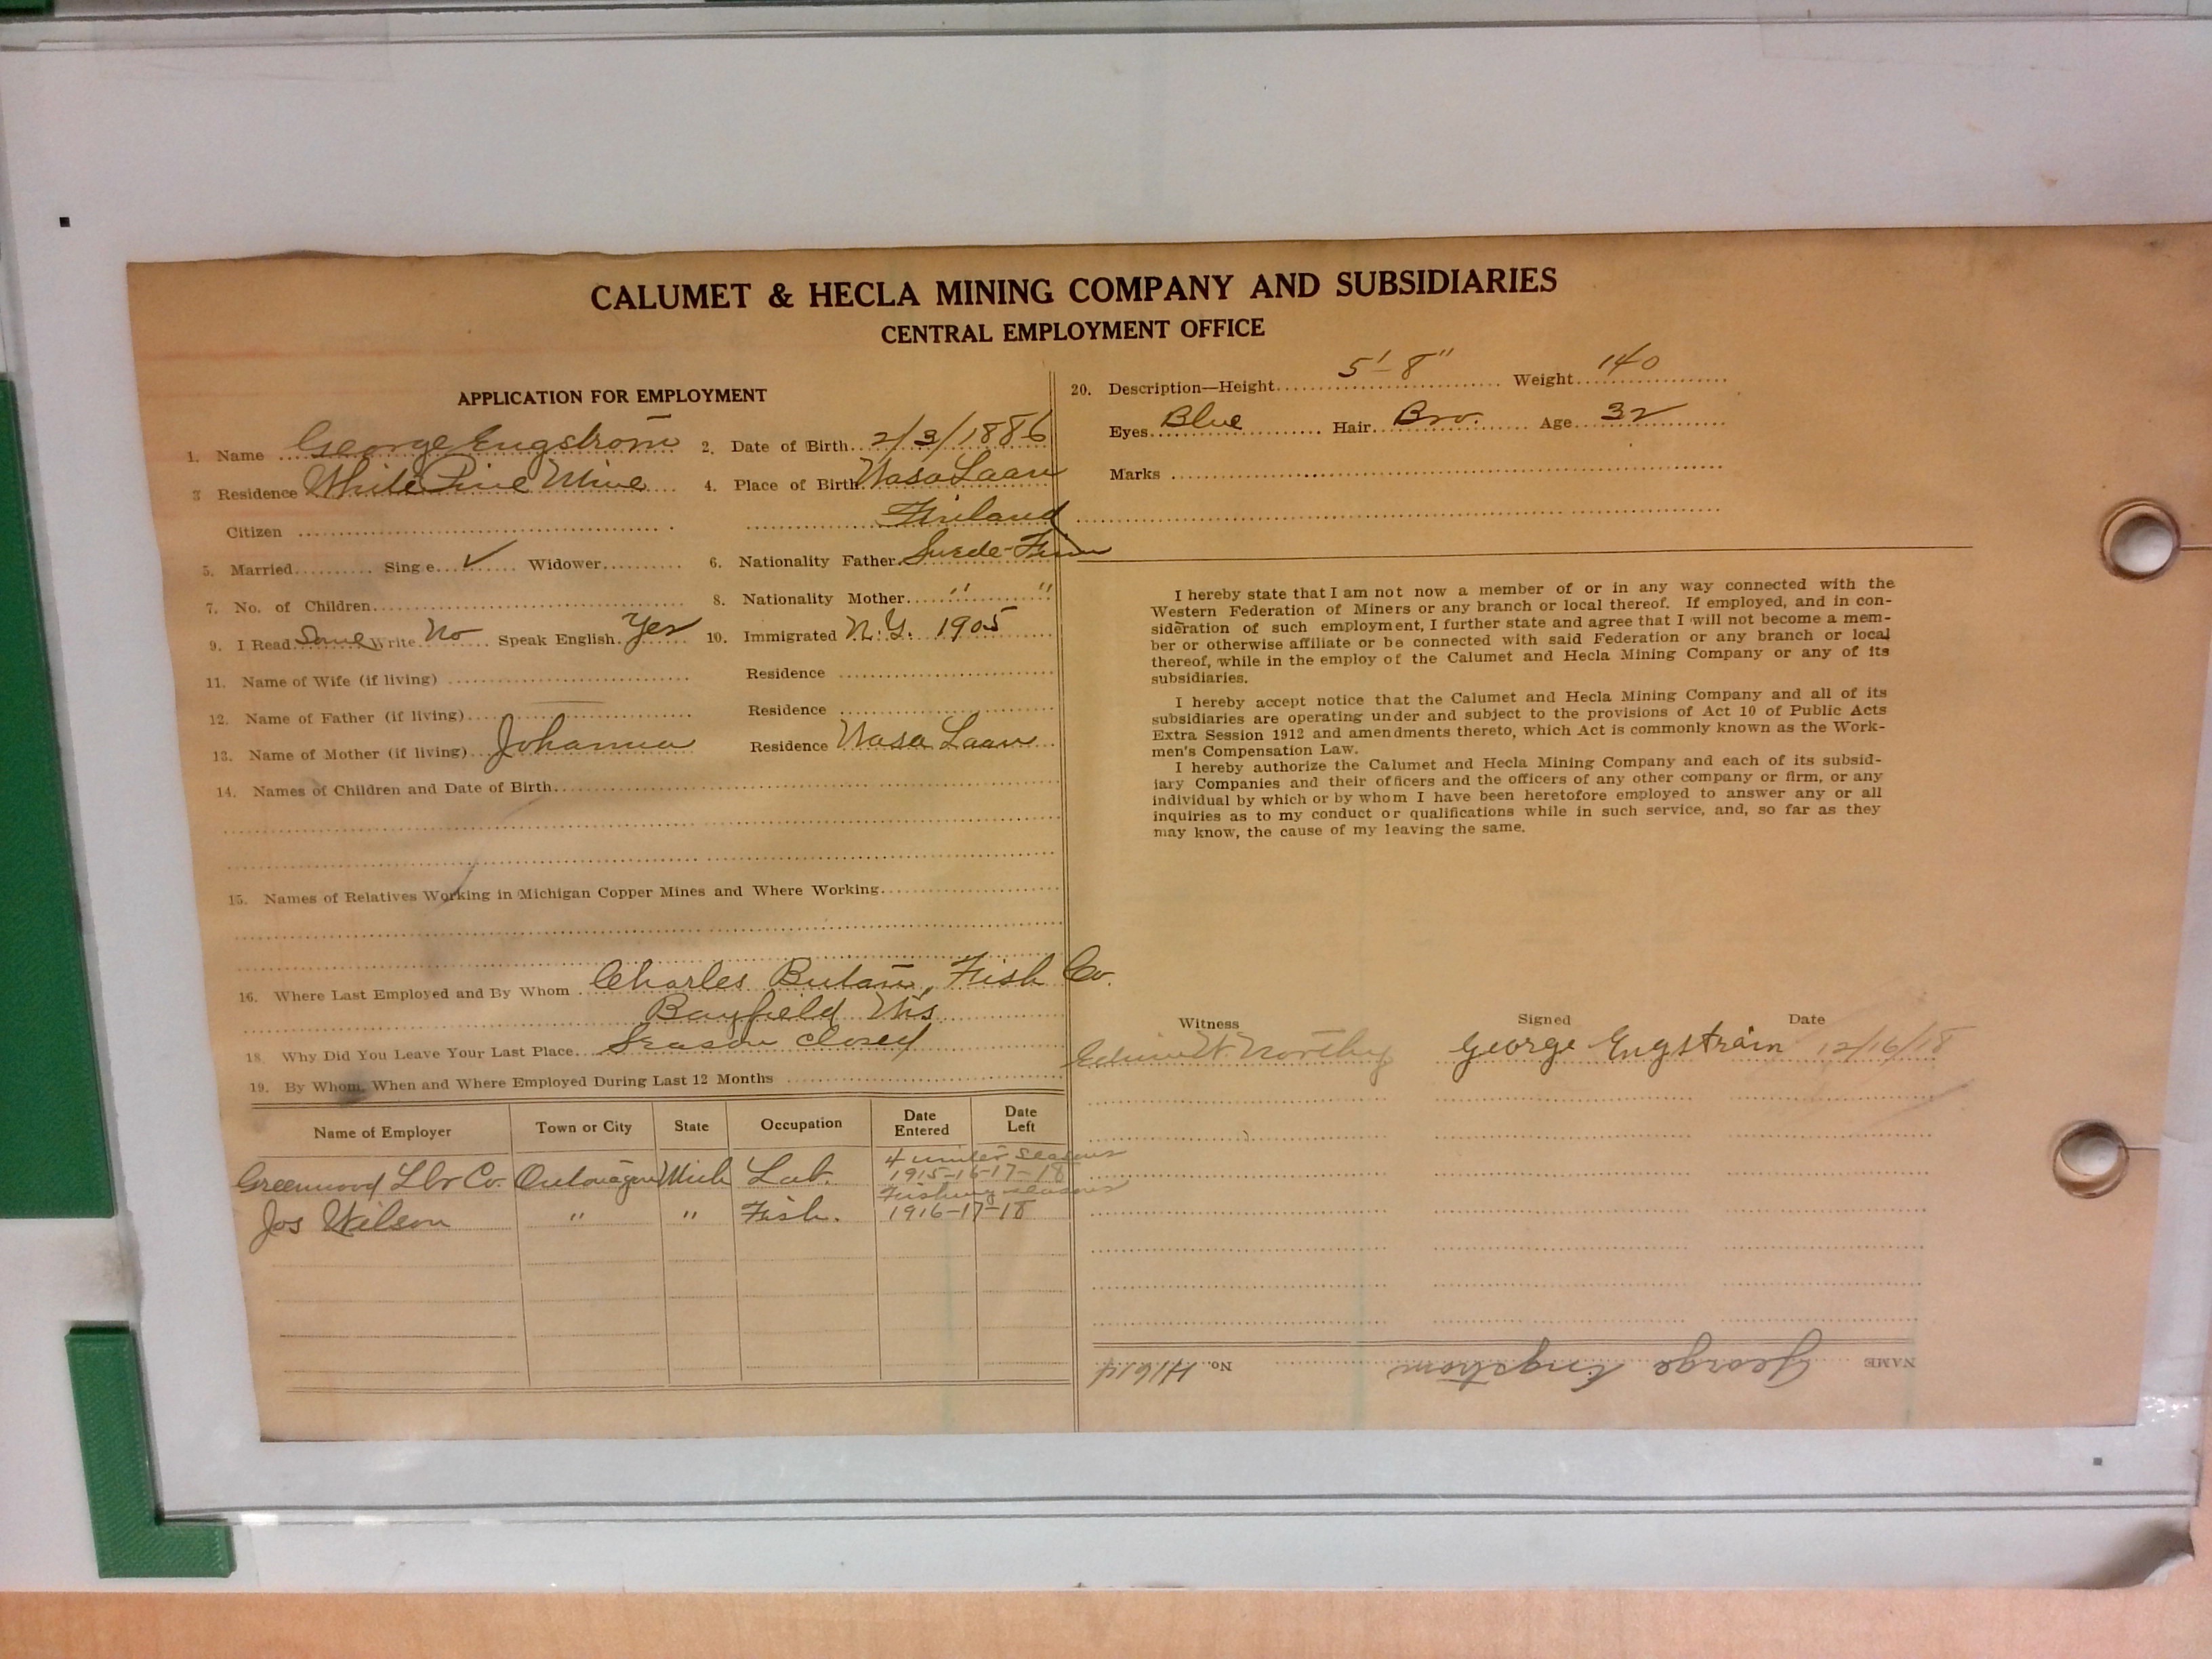 CALUMET & HECLA MINING COMPANY AND SUBSIDIARIES
CENTRAL EMPLOYMENT OFFICE
APPLICATION FOR EMPLOYMENT
1. Name George Engstrom 2. Date of Birth 2/3/1886
3 Residence White Pine Mine 4. Place of Birth Wasa Laan
Citizen Finland
5. Married Sing e ✓ Widower 6. Nationality Father Swede-Finn
7. No. of Children 8. Nationality Mother " "
9. I Read Some Write No Speak English Yes 10. Immigrated N.Y. 1905
11. Name of Wife (if living) Residence
12. Name of Father (if living) — Residence
13. Name of Mother (if living) Johanna Residence Wasa Laan
14. Names of Children and Date of Birth
15. Names of Relatives Working in Michigan Copper Mines and Where Working
16. Where Last Employed and By Whom Charles Fish Co.
Bayfield Wis
18. Why Did You Leave Your Last Place Season closed
19. By Whom, When and Where Employed During Last 12 Months
Name of Employer Town or City State Occupation Date Entered Date Left
4 winter seasons
Greenwood Lbr Co. Ontonagon Mich Lab. 1915-16-17-18
Fishing seasons
Jos Wilson " " Fish. 1916-17-18
20. Description—Height 5'-8" Weight 140
Eyes Blue Hair Bro. Age 32
Marks
I hereby state that I am not now a member of or in any way connected with the
Western Federation of Miners or any branch or local thereof. If employed, and in con-
sideration of such employment, I further state and agree that I will not become a mem-
ber or otherwise affiliate or be connected with said Federation or any branch or local
thereof, while in the employ of the Calumet and Hecla Mining Company or any of its
subsidiaries.
I hereby accept notice that the Calumet and Hecla Mining Company and all of its
subsidiaries are operating under and subject to the provisions of Act 10 of Public Acts
Extra Session 1912 and amendments thereto, which Act is commonly known as the Work-
men's Compensation Law.
I hereby authorize the Calumet and Hecla Mining Company and each of its subsid-
iary Companies and their officers and the officers of any other company or firm, or any
individual by which or by whom I have been heretofore employed to answer any or all
inquiries as to my conduct or qualifications while in such service, and, so far as they
may know, the cause of my leaving the same.
Witness Signed Date
Edwin W. Northey George Engström 12/16/18
NAME George Engstrom No. H1614